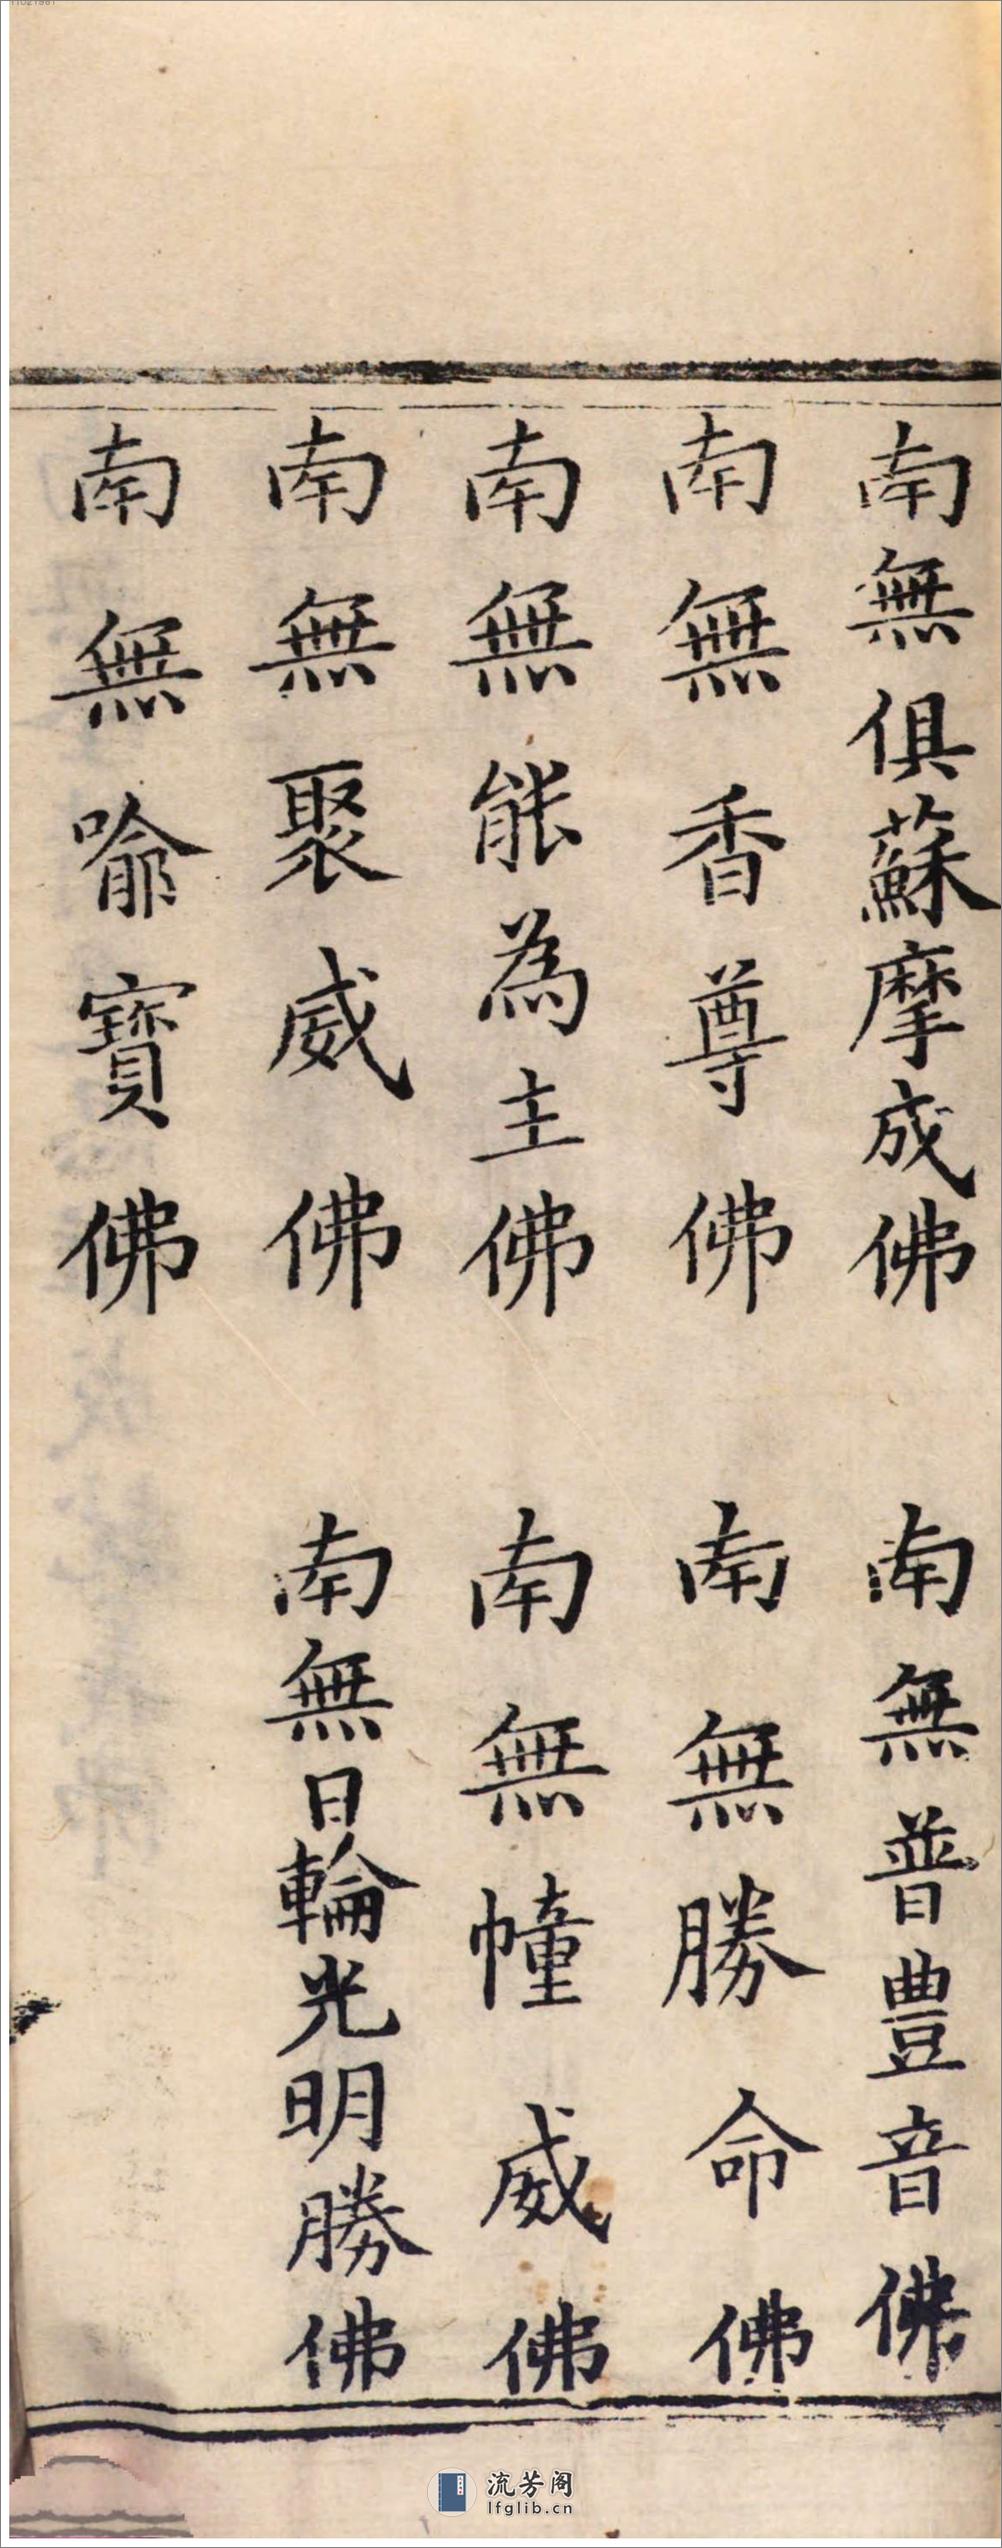 南無俱蘇摩成佛　南無普豊音佛
南無香尊佛　南無勝命佛
南無能為主佛　南無幢威佛
南無聚威佛　南無日輪光明勝佛
南無喻寶佛
流芳阁
lfglib.cn